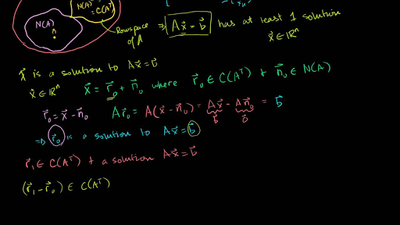 N(Aᵀ)
= C(Aᵀ)
N(A)
Rowspace of A
⇒ Ax⃗ = b⃗ has at least 1 solution
x⃗ ∈ ℝⁿ
x⃗ is a solution to Ax⃗ = b⃗
x⃗ ∈ ℝⁿ
x⃗ = r⃗₀ + n⃗₀ where r⃗₀ ∈ C(Aᵀ) + n⃗₀ ∈ N(A)
r⃗₀ = x⃗ - n⃗₀ Ar⃗₀ = A(x⃗ - n⃗₀) = Ax⃗ - An⃗₀ = b⃗
b⃗ 0⃗
⇒ r⃗₀ is a solution to Ax⃗ = b⃗
r⃗₁ ∈ C(Aᵀ) + a solution Ax⃗ = b⃗
(r⃗₁ - r⃗₀) ∈ C(Aᵀ)